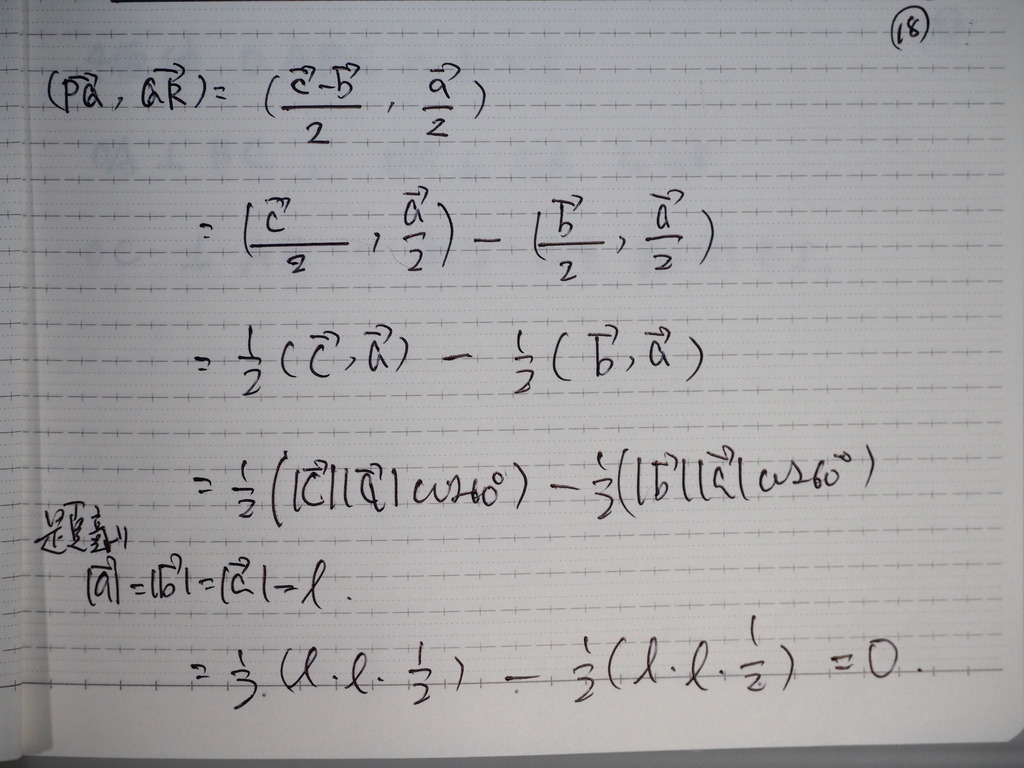 (18)
(PQ→, QR→) = ((c→ - b→)/2, a→/2)
= (c→/2, a→/2) - (b→/2, a→/2)
= 1/2 (c→, a→) - 1/2 (b→, a→)
= 1/2 (|c→||a→| cos60°) - 1/2 (|b→||a→| cos60°)
題意より
|a→| = |b→| = |c→| = l.
= 1/2 (l・l・1/2) - 1/2 (l・l・1/2) = 0.